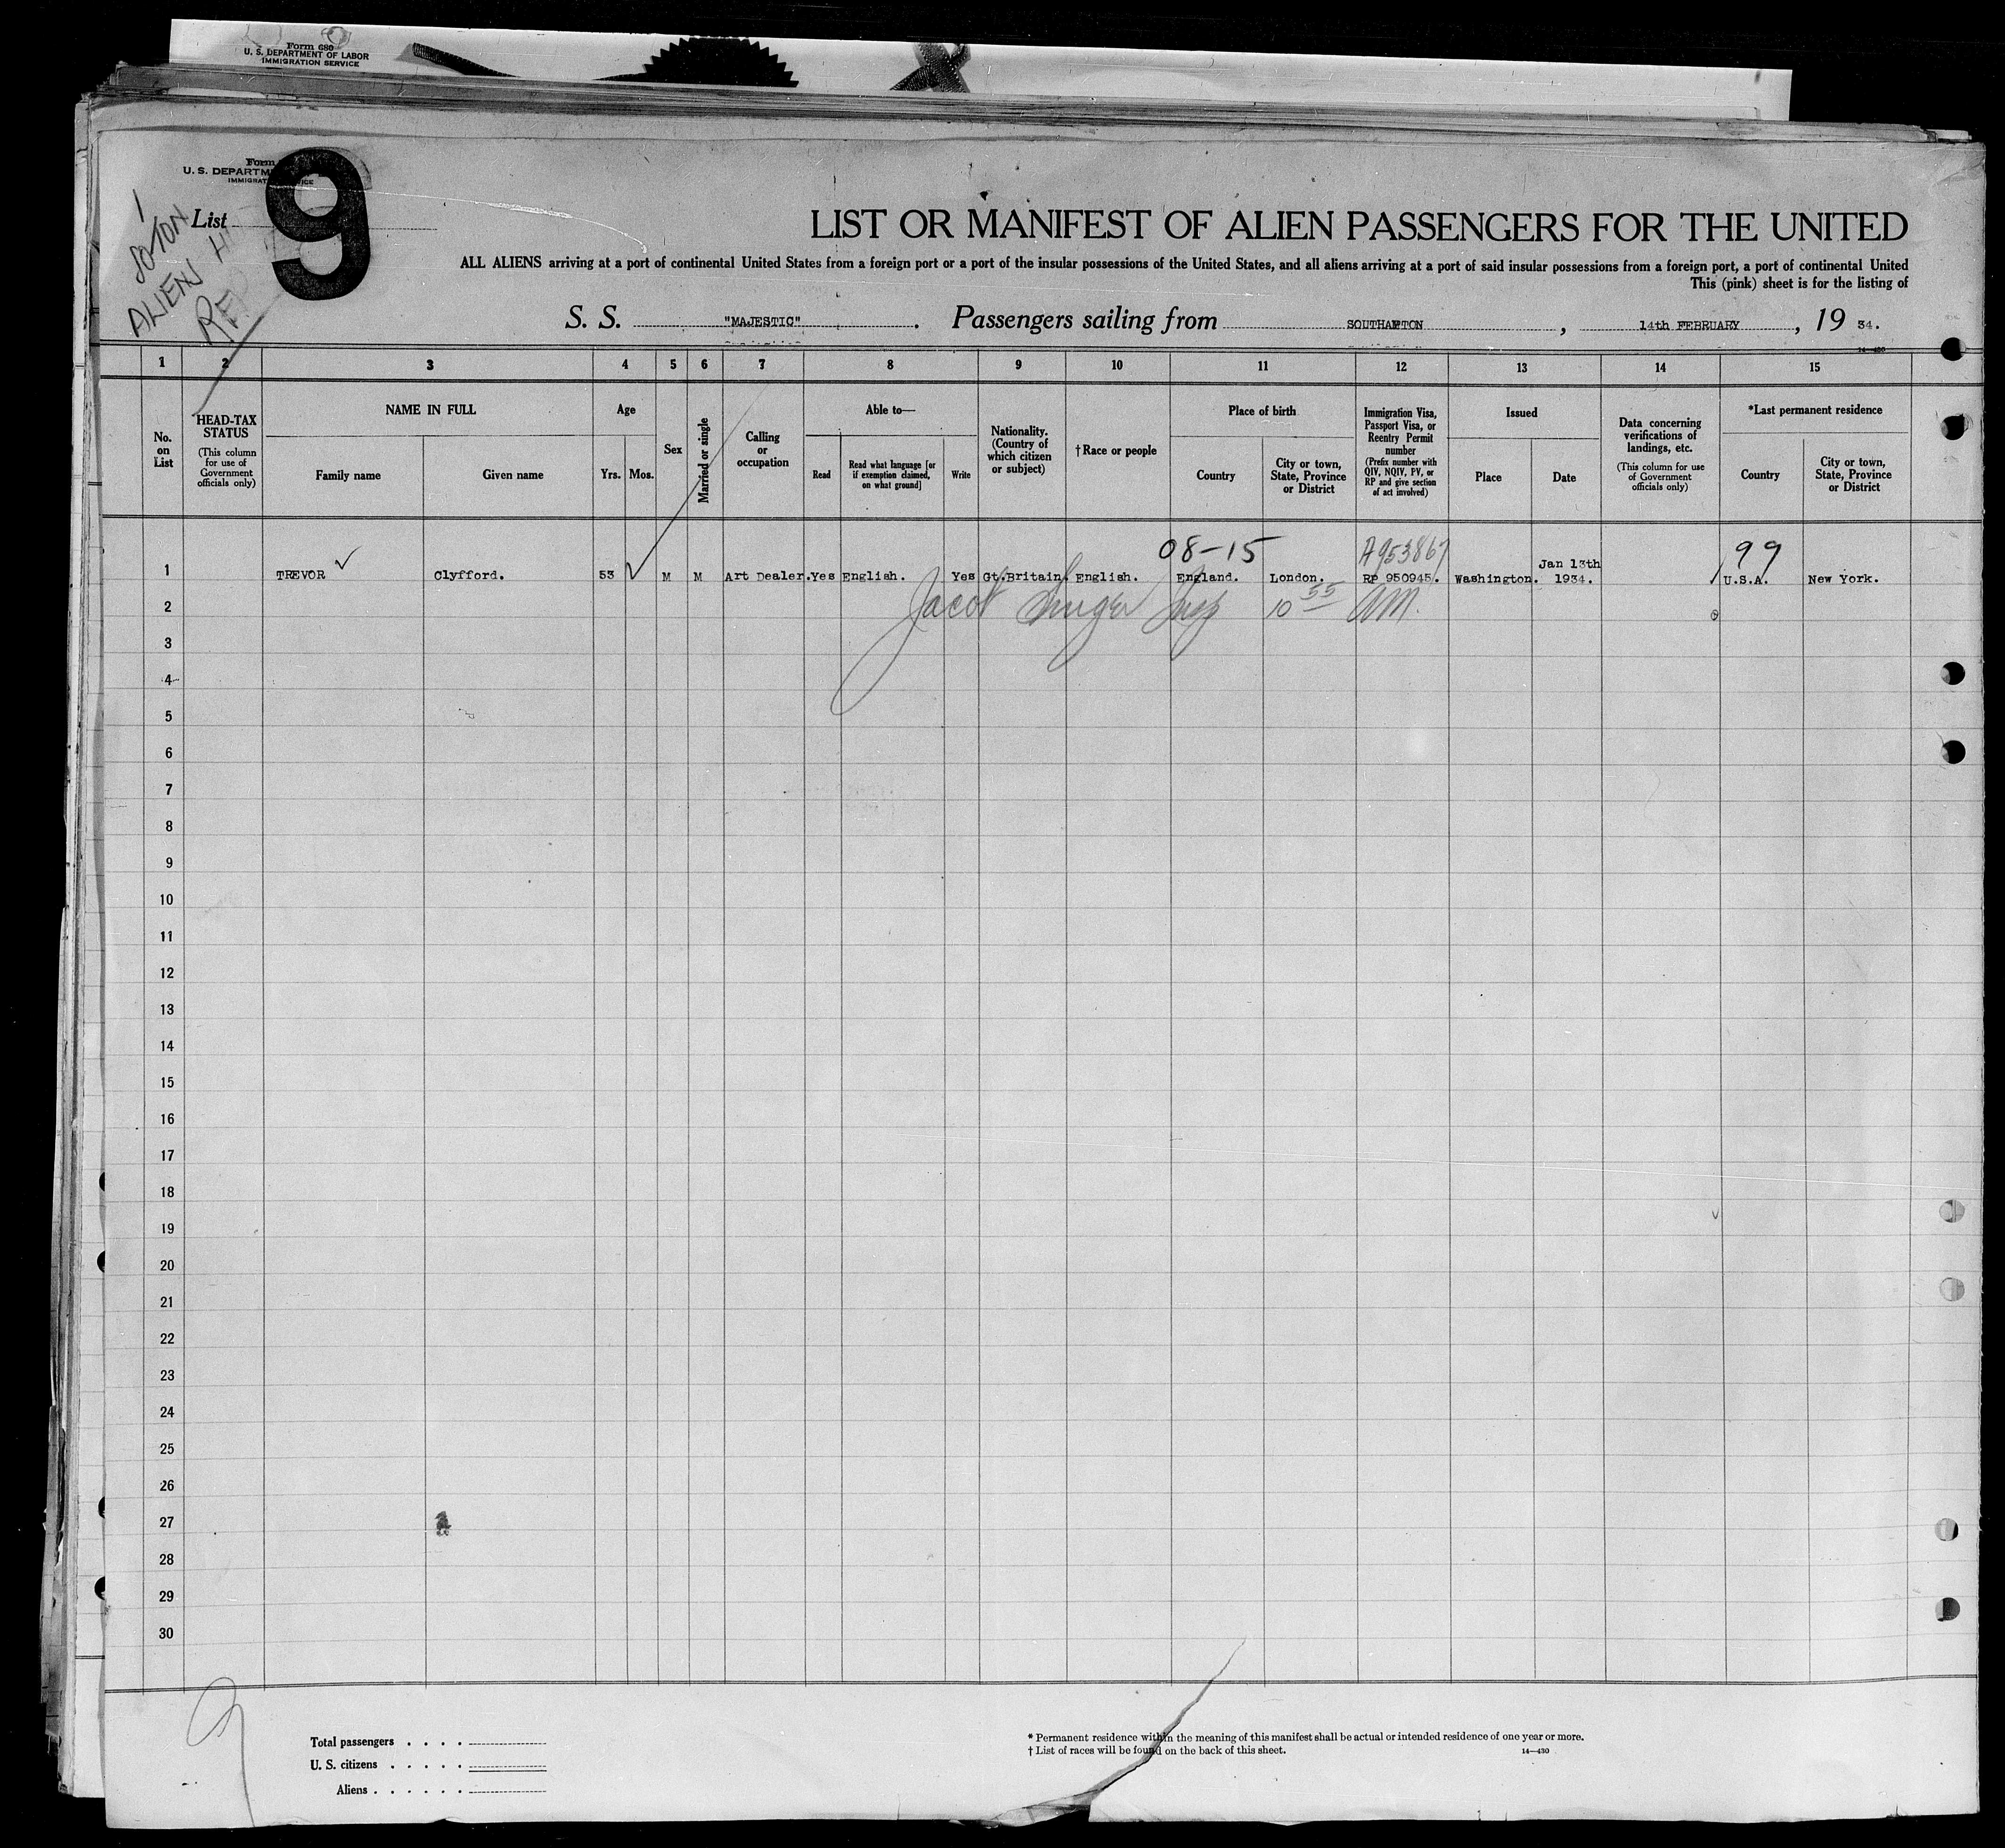 Form 680
U. S. DEPARTMENT OF LABOR
IMMIGRATION SERVICE
Form
U. S. DEPARTM
IMMIGRAT VICE
List 9
1
SO'TON
ALIENS
LIST OR MANIFEST OF ALIEN PASSENGERS FOR THE UNITED
ALL ALIENS arriving at a port of continental United States from a foreign port or a port of the insular possessions of the United States, and all aliens arriving at a port of said insular possessions from a foreign port, a port of continental United
This (pink) sheet is for the listing of
S. S. "MAJESTIC". Passengers sailing from SOUTHAMPTON, 14th FEBRUARY, 19 34.
14—430
1 2 3 4 5 6 7 8 9 10 11 12 13 14 15
No. on List
HEAD-TAX STATUS (This column for use of Government officials only)
NAME IN FULL
Family name
Given name
Age
Yrs.
Mos.
Sex
Married or single
Calling or occupation
Able to—
Read
Read what language [or if exemption claimed, on what ground]
Write
Nationality. (Country of which citizen or subject)
†Race or people
Place of birth
Country
City or town, State, Province or District
Immigration Visa, Passport Visa, or Reentry Permit number (Prefix number with QIV, NQIV, PV, or RP and give section of act involved)
Issued
Place
Date
Data concerning verifications of landings, etc. (This column for use of Government officials only)
*Last permanent residence
Country
City or town, State, Province or District
08-15 A953867 99
1 TREVOR Clyfford. 53 M M Art Dealer. Yes English. Yes Gt.Britain. English. England. London. RP 950945. Washington. Jan 13th 1934. U.S.A. New York.
2 Jacob Singer Insp 10 55 AM.
3
4
5
6
7
8
9
10
11
12
13
14
15
16
17
18
19
20
21
22
23
24
25
26
27
28
29
30
9
Total passengers . . . .
U. S. citizens . . . . .
Aliens . . . . . .
* Permanent residence within the meaning of this manifest shall be actual or intended residence of one year or more.
† List of races will be found on the back of this sheet.
14—430